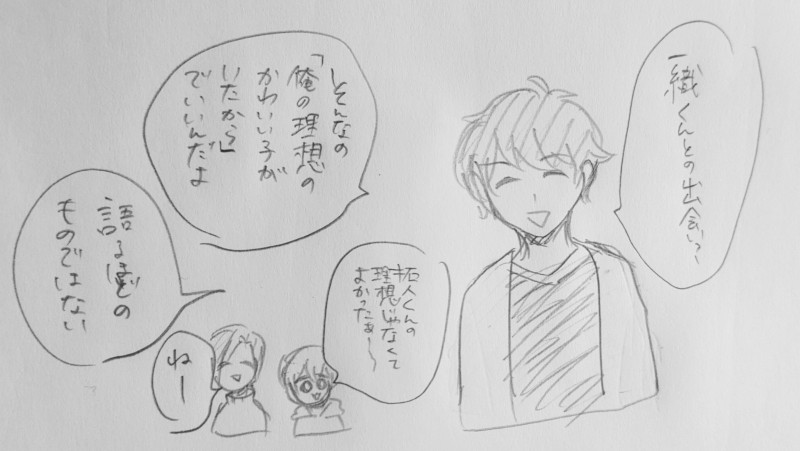 一織くんとの出会い?
そんなの
「俺の理想の
かわいい子が
いたから」
でいいんだよ
語るほどの
ものではない
拓人くんの
理想じゃなくて
よかったぁ〜〜
ねー